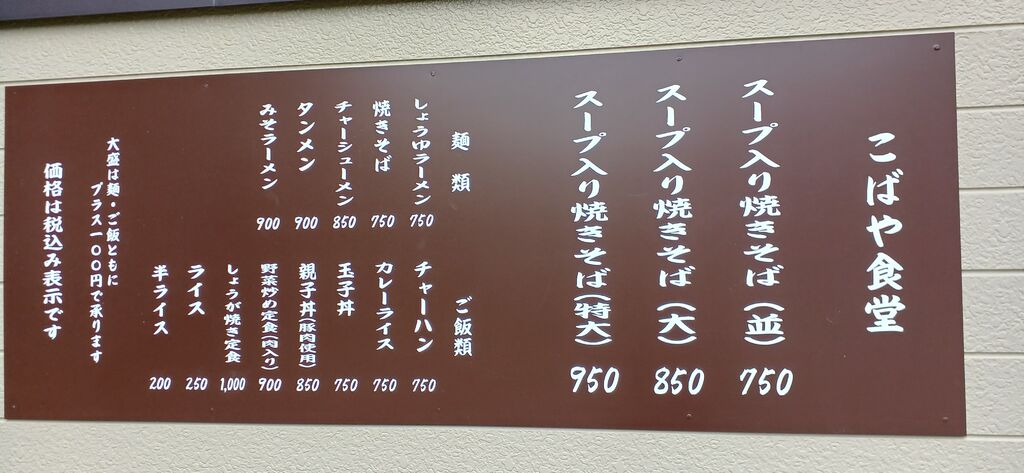 こばや食堂
スープ入り焼きそば(並) 750
スープ入り焼きそば(大) 850
スープ入り焼きそば(特大) 950
麺類
しょうゆラーメン 750
焼きそば 750
チャーシューメン 850
タンメン 900
みそラーメン 900
ご飯類
チャーハン 750
カレーライス 750
玉子丼 750
親子丼(豚肉使用) 850
野菜炒め定食(肉入り) 900
しょうが焼き定食 1,000
ライス 250
半ライス 200
大盛は麺・ご飯ともに
プラス一〇〇円で承ります
価格は税込み表示です